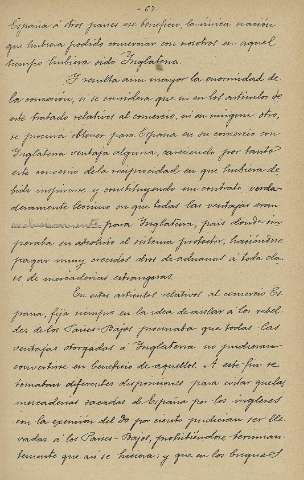 - 67
España á otros paises su beneficio la única nacion
que hubiera podido conservar con nosotros en aquel
tiempo hubiera sido Inglaterra.
Y resulta aun mayor la enormidad de
la concesion, si se considera que ni en los artículos de
este tratado relativos al comercio, ni en ningun otro,
se procura obtener para España en su comercio con
Inglaterra ventaja alguna, careciendo por tanto
este convenio de la reciprocidad en que hubiera de
bido inspirarse, y constituyendo un contrato verda-
deramente leonino en que todas las ventajas eran
para Inglaterra, país donde im
peraba en absoluto el sistema protector, haciéndose
pagar muy crecidos dros de aduanas á toda cla
se de mercaderias extrangeras.
En estos artículos relativos al comercio Es
paña, fija siempre en la idea de aislar á los rebel
des de los Paises-Bajos procuraba que todas las
ventajas otorgadas á Inglaterra no pudieran
convertirse en beneficio de aquellos. A este fin se
tomaban diferentes disposiciones para evitar que las
mercaderias sacadas de España por los ingleses
con la exencion del 30 por ciento pudieran ser lle
vadas á los Paises-Bajos, prohibiéndose terminan-
temente que asi se hiciera; y que en los buques